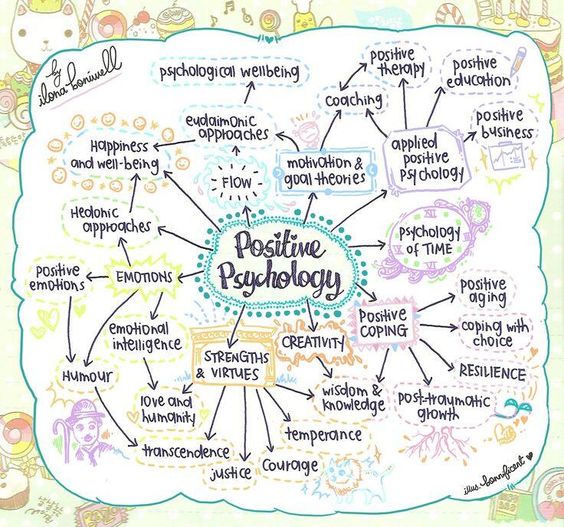 by
ilona boniwell
psychological wellbeing
positive
therapy
positive
education
coaching
eudaimonic
approaches
Happiness
and well-being
FLOW
motivation &
goal theories
applied
positive
Psychology
positive
business
Hedonic
approaches
Positive
Psychology
XII
PSYCHOLOGY
OF TIME
VI
positive
emotions
EMOTIONS
Positive
COPING
positive
aging
emotional
intelligence
STRENGTHS
& VIRTUES
CREATIVITY
coping with
choice
Humour
love and
humanity
wisdom &
knowledge
RESILIENCE
post-traumatic
growth
temperance
transcendence
justice
Courage
illus. bannificent